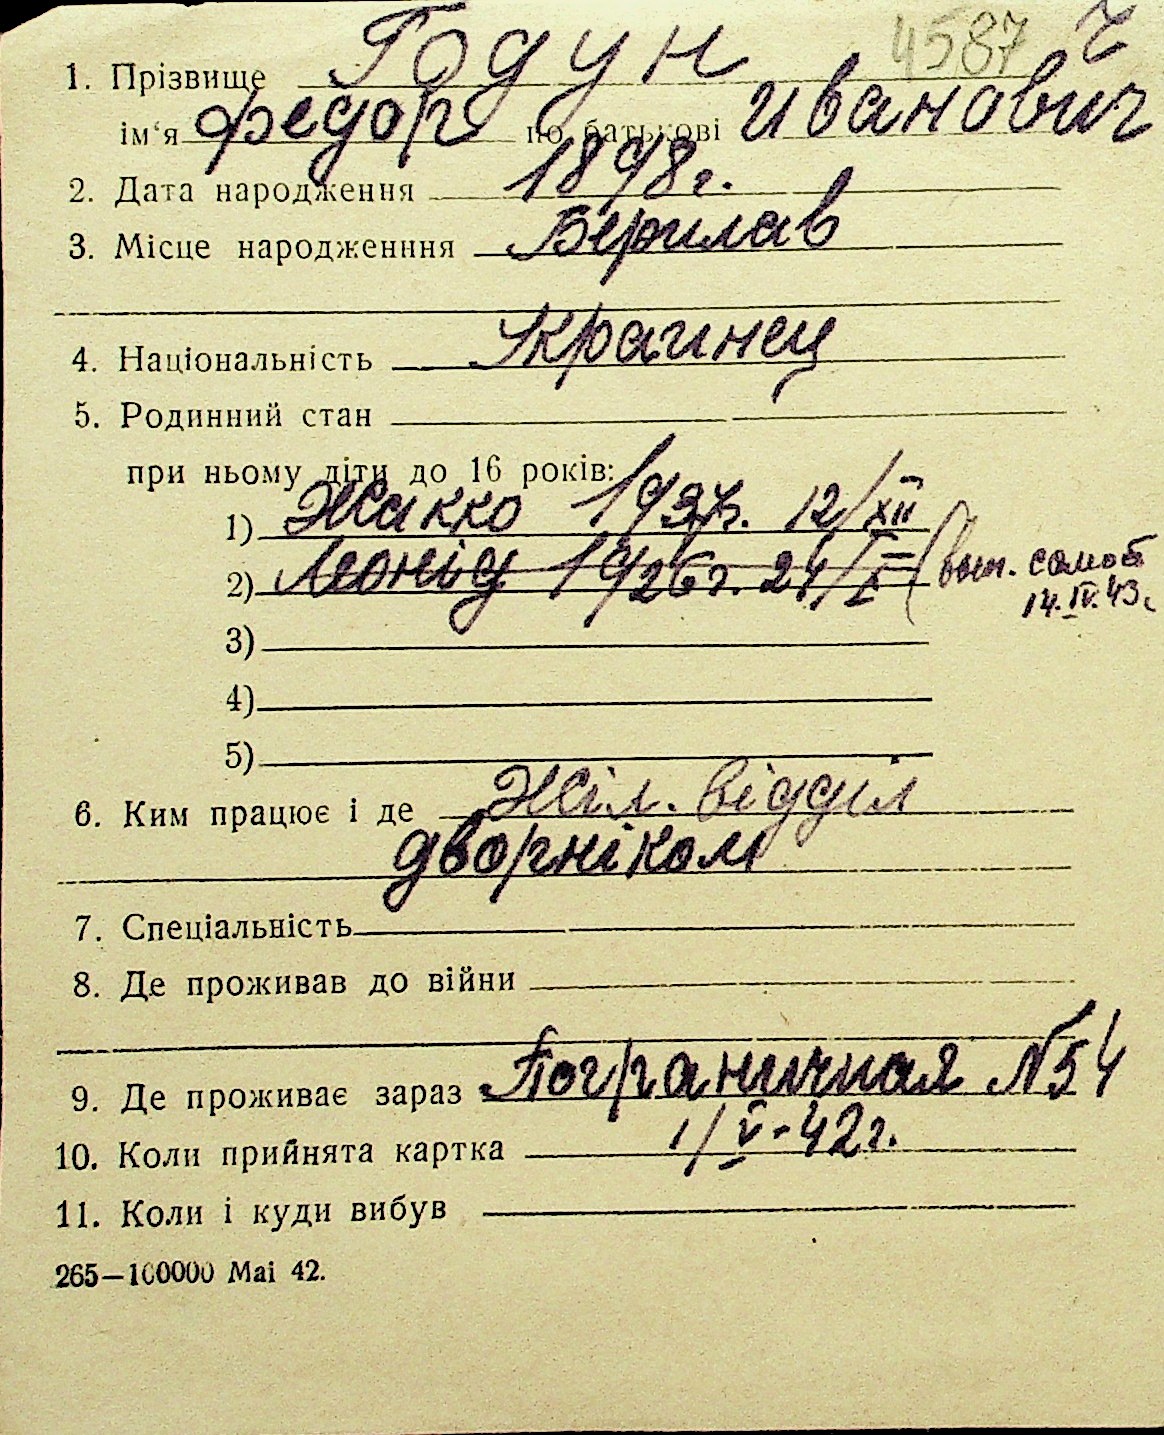 4587 ч
1. Прізвище Годун
ім‘я Федор по батькові Иванович
2. Дата народження 1898 г.
3. Місце народженння Берилав
4. Національність Украинец
5. Родинний стан
при ньому діти до 16 років:
1) Жакко 1937г. 12/XII
2) Леонід 1926 г. 24/I вып. самост
14.IV.43 г
3)
4)
5)
6. Ким працює і де Жіл. відділ
дворніком
7. Спеціальність
8. Де проживав до війни
9. Де проживає зараз Пограничная №54
10. Коли прийнята картка 1/V-42г.
11. Коли і куди вибув
265—100000 Mai 42.